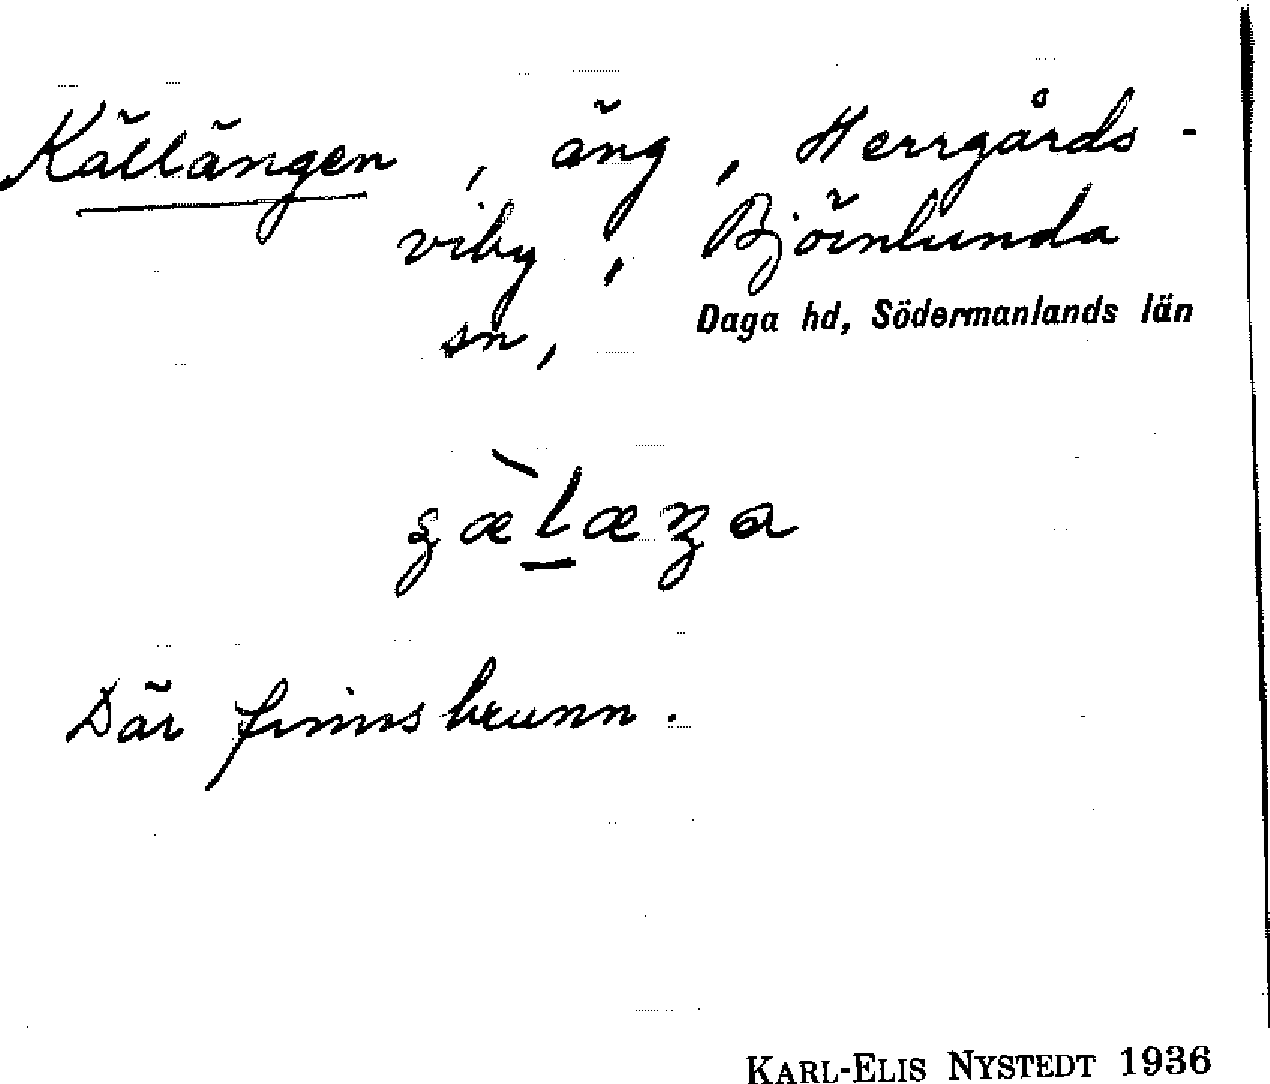 Källängen, äng, Herrgårds-
viby, Björnlunda
sn, Daga hd, Södermanlands län
Där finns brunn.
KARL-ELIS NYSTEDT 1936